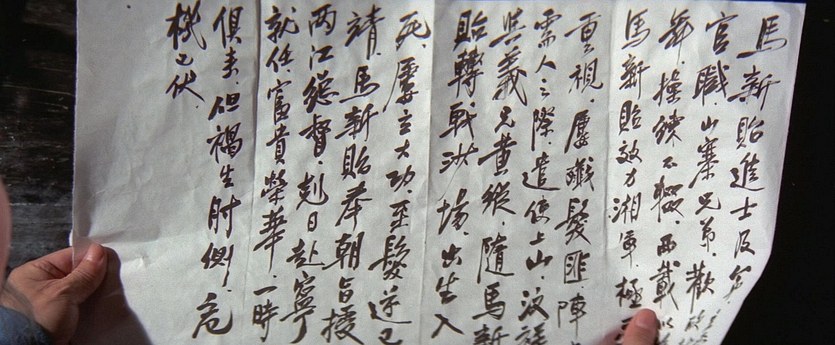 馬新貽進士及第,
官職,山寨兄弟,歡
舞,操練不輟,兩載
馬新貽效力湘軍,極
重視,屢殲髮匪,陣
需人之際,遣使上山,汶祥
與義兄黃縱,隨馬新
貽轉戰沙場,出生入
死,屢立大功,至髮逆已
靖,馬新貽奉朝旨授
兩江總督,剋日赴寧
就任,富貴榮華,一時
俱來,但禍生肘側,危
機已伏